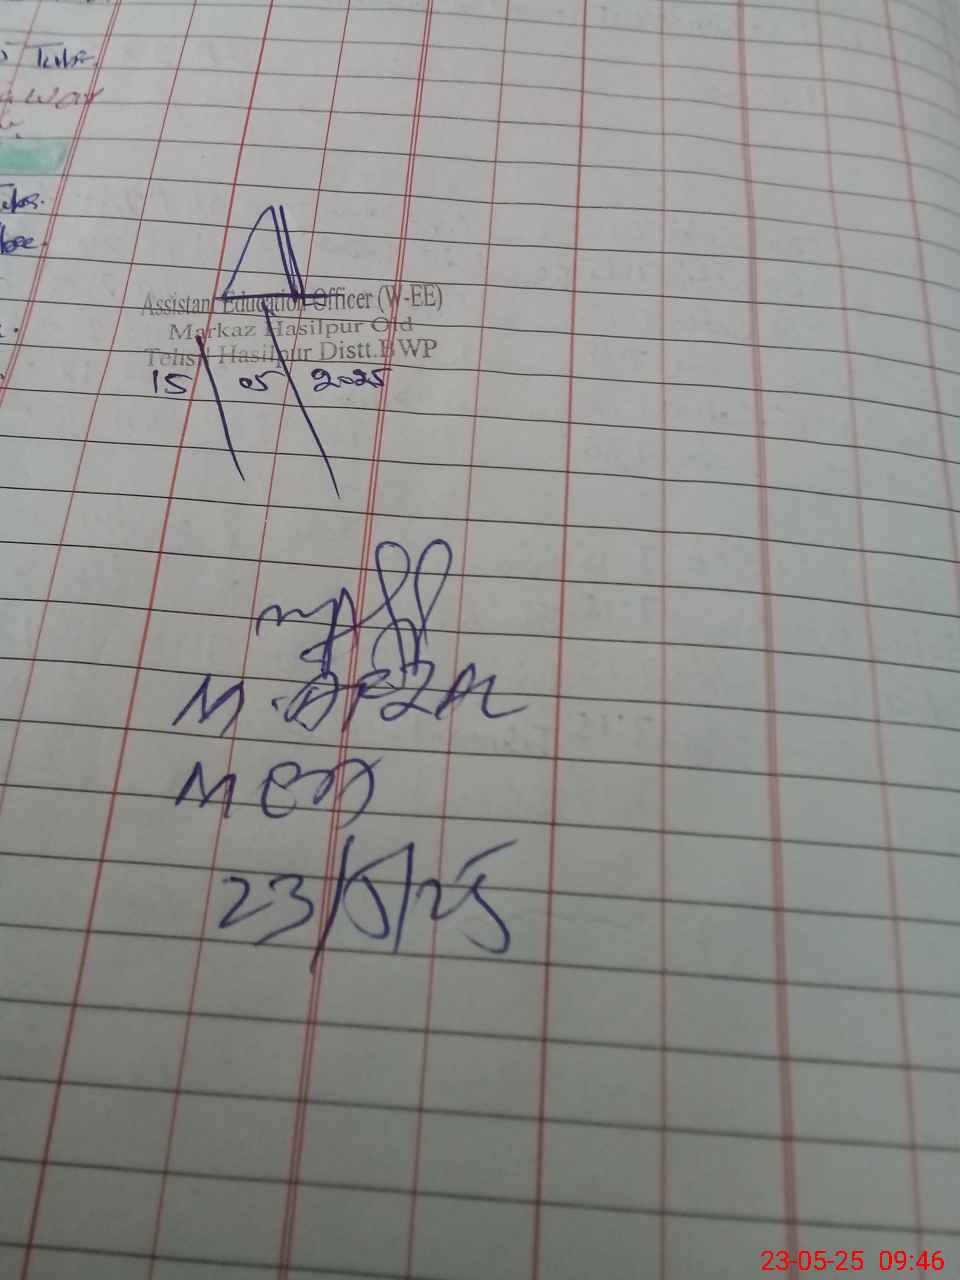 Tube.
way
Assistant Education Officer (W-EE)
Markaz Hasilpur Old
Tehsil Hasilpur Distt.BWP
15/05/2025
M. AFZAL
MEA
23/5/25
23-05-25 09:46